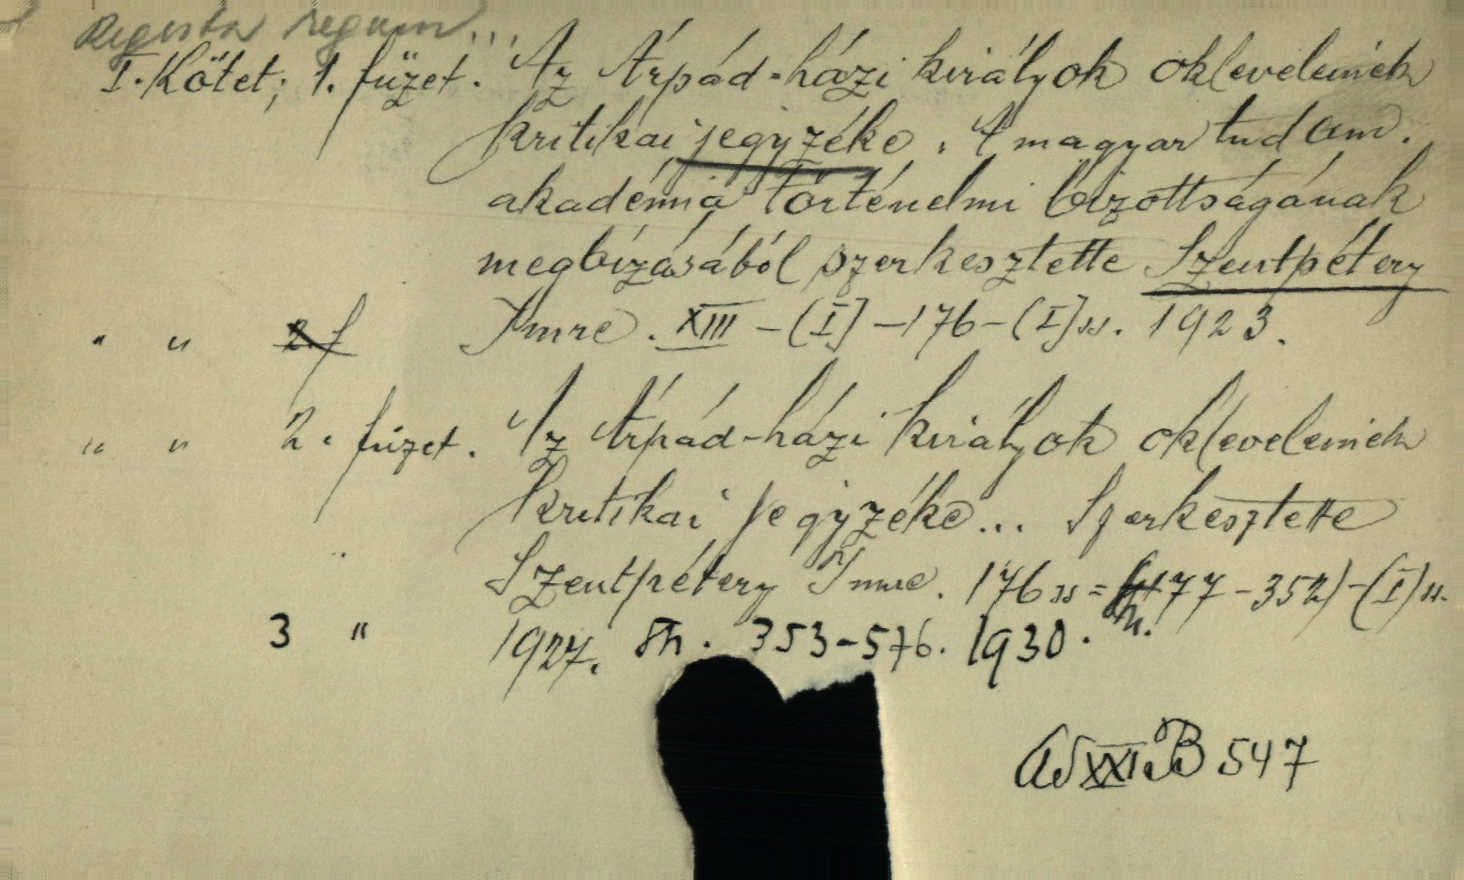 Regesta regum...
I. Kötet; 1. füzet. Az Árpád-házi királyok okleveleinek
kritikai jegyzéke. A magyar tud am.
akadémia történelmi bizottságának
megbízásából szerkesztette Szentpétery
" " 2. f Imre. XIII-(I]-176-(I]ss. 1923.
" " 2. füzet. Az Árpád-házi királyok okleveleinek
kritikai jegyzéke... Szerkesztette
Szentpétery Imre. 176 ss = 177-352)-(I)ss.
3 " 1927. 353-576. 1930.
XXI. B 547